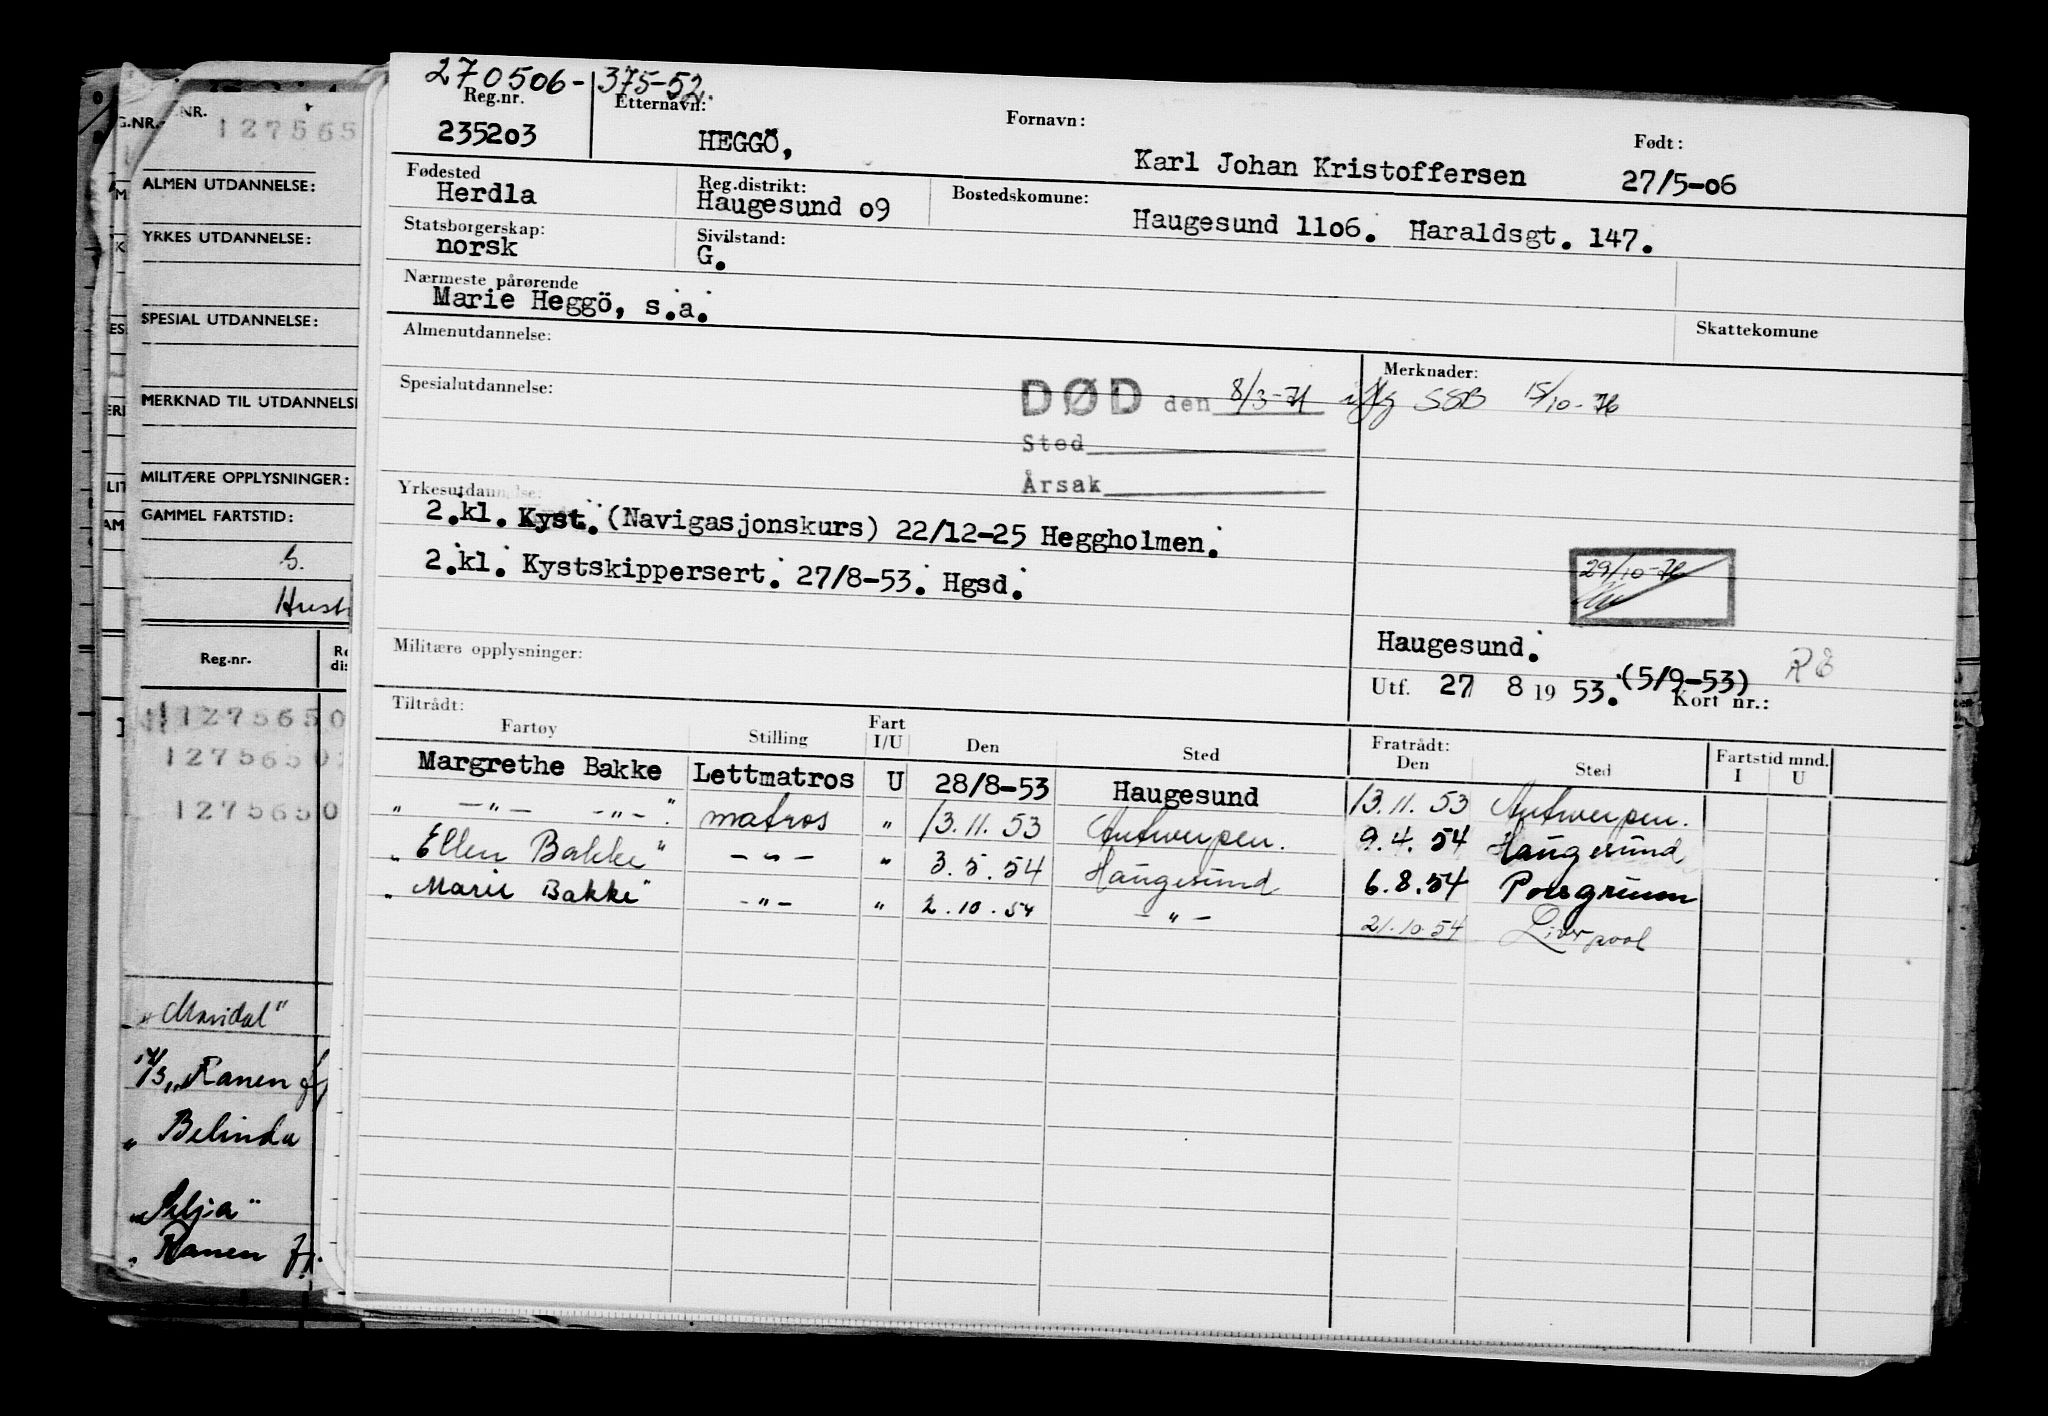 270506-375-52.
Reg.nr. Etternavn: Fornavn: Født:
235203 HEGGÖ, Karl Johan Kristoffersen 27/5-06
Fødested Reg.distrikt: Bostedskomune:
Herdla Haugesund o9 Haugesund 11o6. Haraldsgt. 147.
Statsborgerskap: Sivilstand:
norsk G.
Nærmeste pårørende
Marie Heggö, s.a.
Skattekomune
Almenutdannelse:
Merknader:
Spesialutdannelse:
DØD den 8/3-71 iflg SSB 15/10-76
Sted
Årsak
Yrkesutdannelse:
2.kl. Kyst. (Navigasjonskurs) 22/12-25 Heggholmen.
2.kl. Kystskippersert. 27/8-53. Hgsd.
29/10-76
Militære opplysninger:
Haugesund.
RE
Utf. 27 8 19 53. (5/9-53) Kort nr.:
Tiltrådt: Fratrådt: Fartstid mnd.
Fartøy Stilling Fart I/U Den Sted Den Sted I U
Margrethe Bakke Lettmatros U 28/8-53 Haugesund 13.11.53 Antwerpen.
" -"- -"-". matros " 13.11.53 Antwerpen. 9.4.54 Haugesund
"Ellen Bakke" -"- " 3.5.54 Haugesund 6.8.54 Porsgrunn
"Marie Bakke" -"- " 2.10.54 -"- 21.10.54 Liverpool
G.NR. NR.
127565
ALMEN UTDANNELSE:
YRKES UTDANNELSE:
SPESIAL UTDANNELSE:
MERKNAD TIL UTDANNELSE
MILITÆRE OPPLYSNINGER:
GAMMEL FARTSTID:
Hust
Reg.nr.
1275650
1275650
1275650
"Maridal"
"Ranen
"Belinda
"Silja"
"Ranen